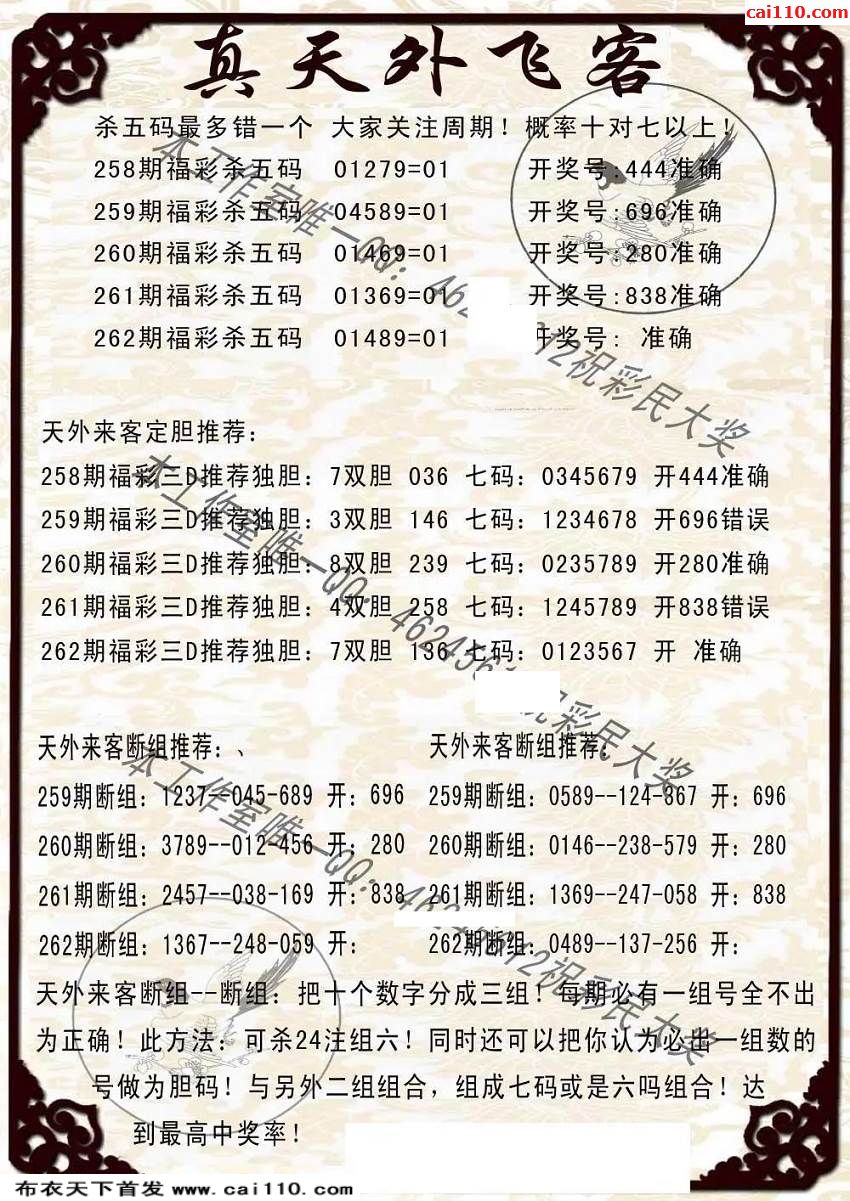 cai110.com
真天外飞客
杀五码最多错一个 大家关注周期！概率十对七以上！
258期福彩杀五码 01279=01 开奖号:444准确
259期福彩杀五码 04589=01 开奖号:696准确
260期福彩杀五码 01469=01 开奖号:280准确
261期福彩杀五码 01369=01 开奖号:838准确
262期福彩杀五码 01489=01 开奖号: 准确
天外来客定胆推荐：
258期福彩三D推荐独胆：7双胆 036 七码：0345679 开444准确
259期福彩三D推荐独胆：3双胆 146 七码：1234678 开696错误
260期福彩三D推荐独胆：8双胆 239 七码：0235789 开280准确
261期福彩三D推荐独胆：4双胆 258 七码：1245789 开838错误
262期福彩三D推荐独胆：7双胆 136 七码：0123567 开 准确
天外来客断组推荐：、 天外来客断组推荐：
259期断组：1237--045-689 开：696 259期断组：0589--124-867 开：696
260期断组：3789--012-456 开：280 260期断组：0146--238-579 开：280
261期断组：2457--038-169 开：838 261期断组：1369--247-058 开：838
262期断组：1367--248-059 开： 262期断组：0489--137-256 开：
天外来客断组--断组：把十个数字分成三组！每期必有一组号全不出
为正确！此方法：可杀24注组六！同时还可以把你认为必出一组数的
号做为胆码！与另外二组组合，组成七码或是六吗组合！达
到最高中奖率！
本工作室唯一QQ：462 12祝彩民大奖
本工作室唯一QQ：462456 祝彩民大奖
本工作室唯一QQ：462 12祝彩民大奖
布衣天下首发 www.cai110.com